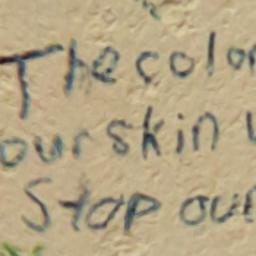 The color
our skin
Stop our